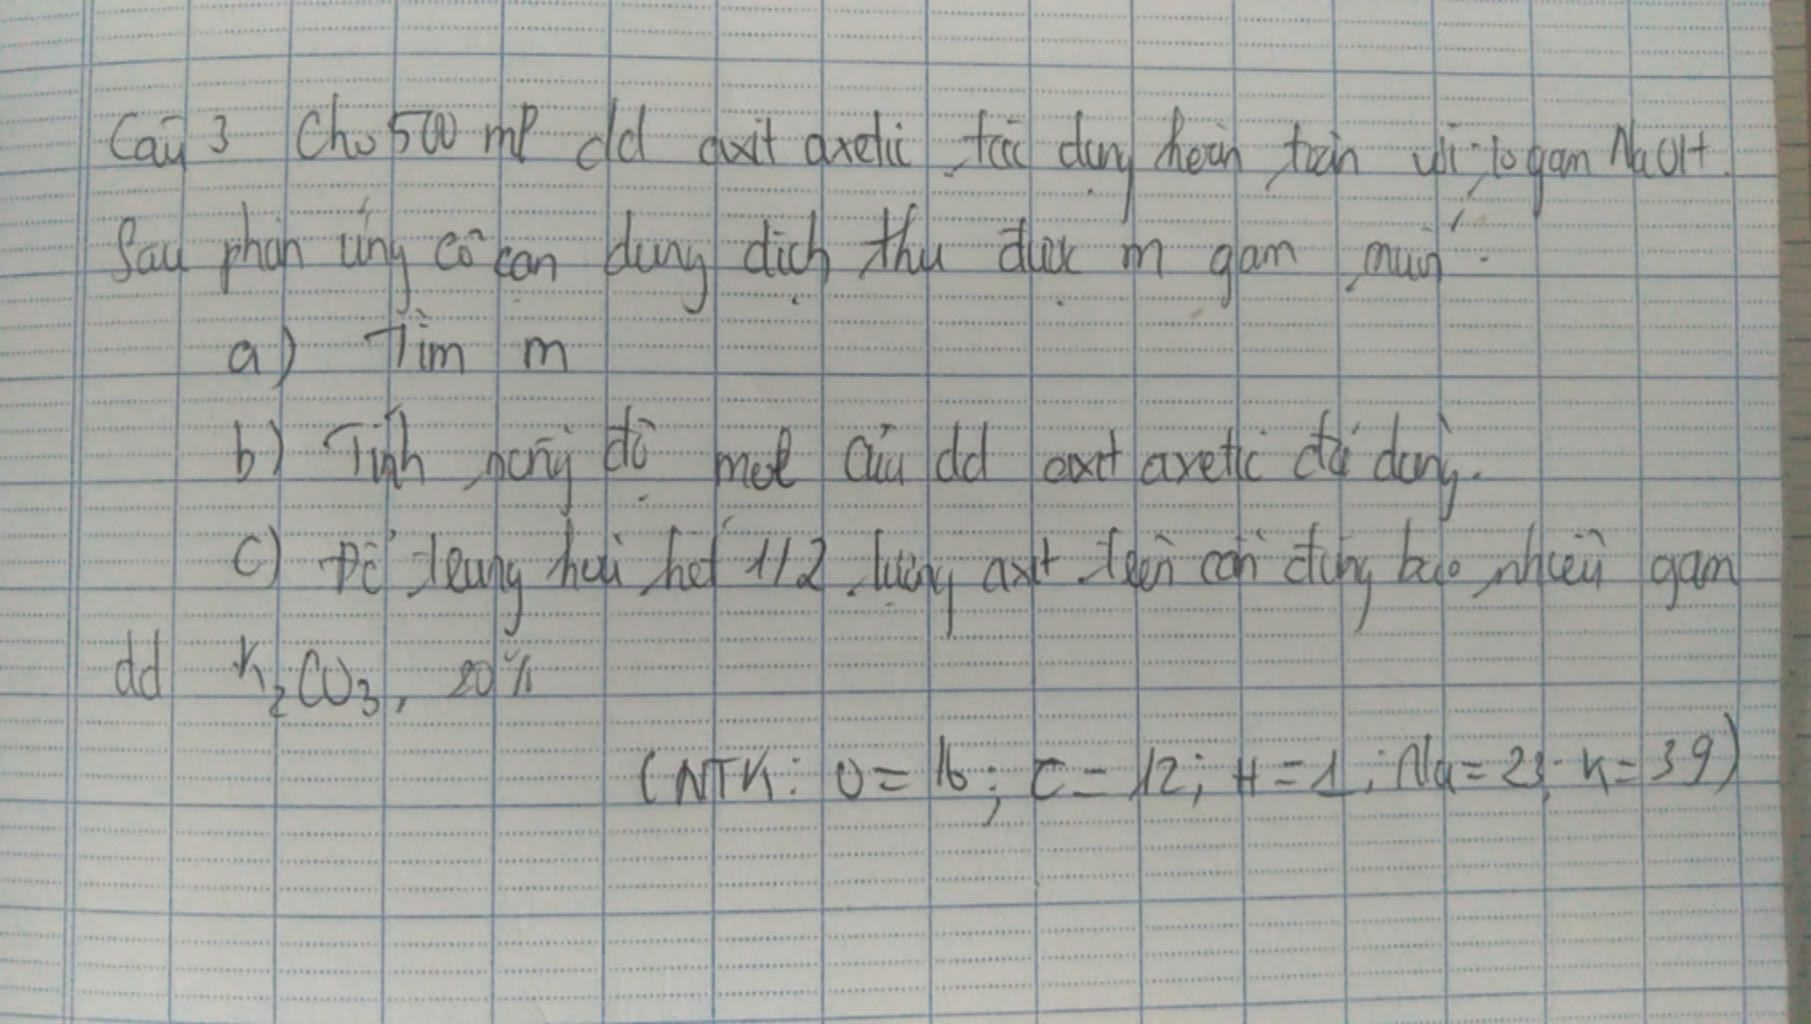 Câu 3 Cho 500 ml dd axit axetic tác dụng hoàn toàn với 10 gam NaOH.
Sau phản ứng cô cạn dung dịch thu được m gam muối.
a) Tìm m
b) Tính nồng độ mol của dd axit axetic đã dùng.
c) Để trung hoà hết 1/2 lượng axit trên cần dùng bao nhiêu gam
dd K₂CO₃, 20%
(NTK: O = 16; C = 12; H = 1; Na = 23; K = 39)